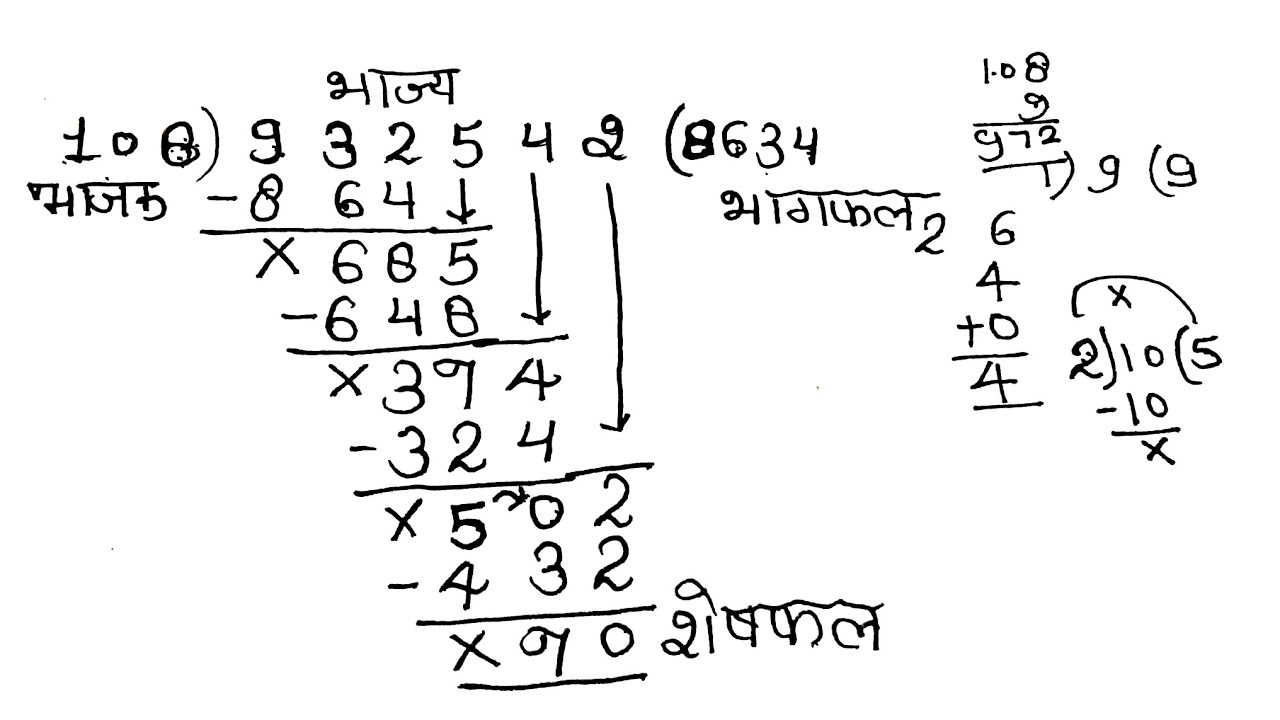 भाज्य
108) 932542 (8634
भाजक -8 64 भागफल
x 685
-648
x 374
-324
x 502
-432
x 70 शेषफल
108
9
972
1) 9 (9
2 6
4
+0
4
x
2)10(5
-10
x